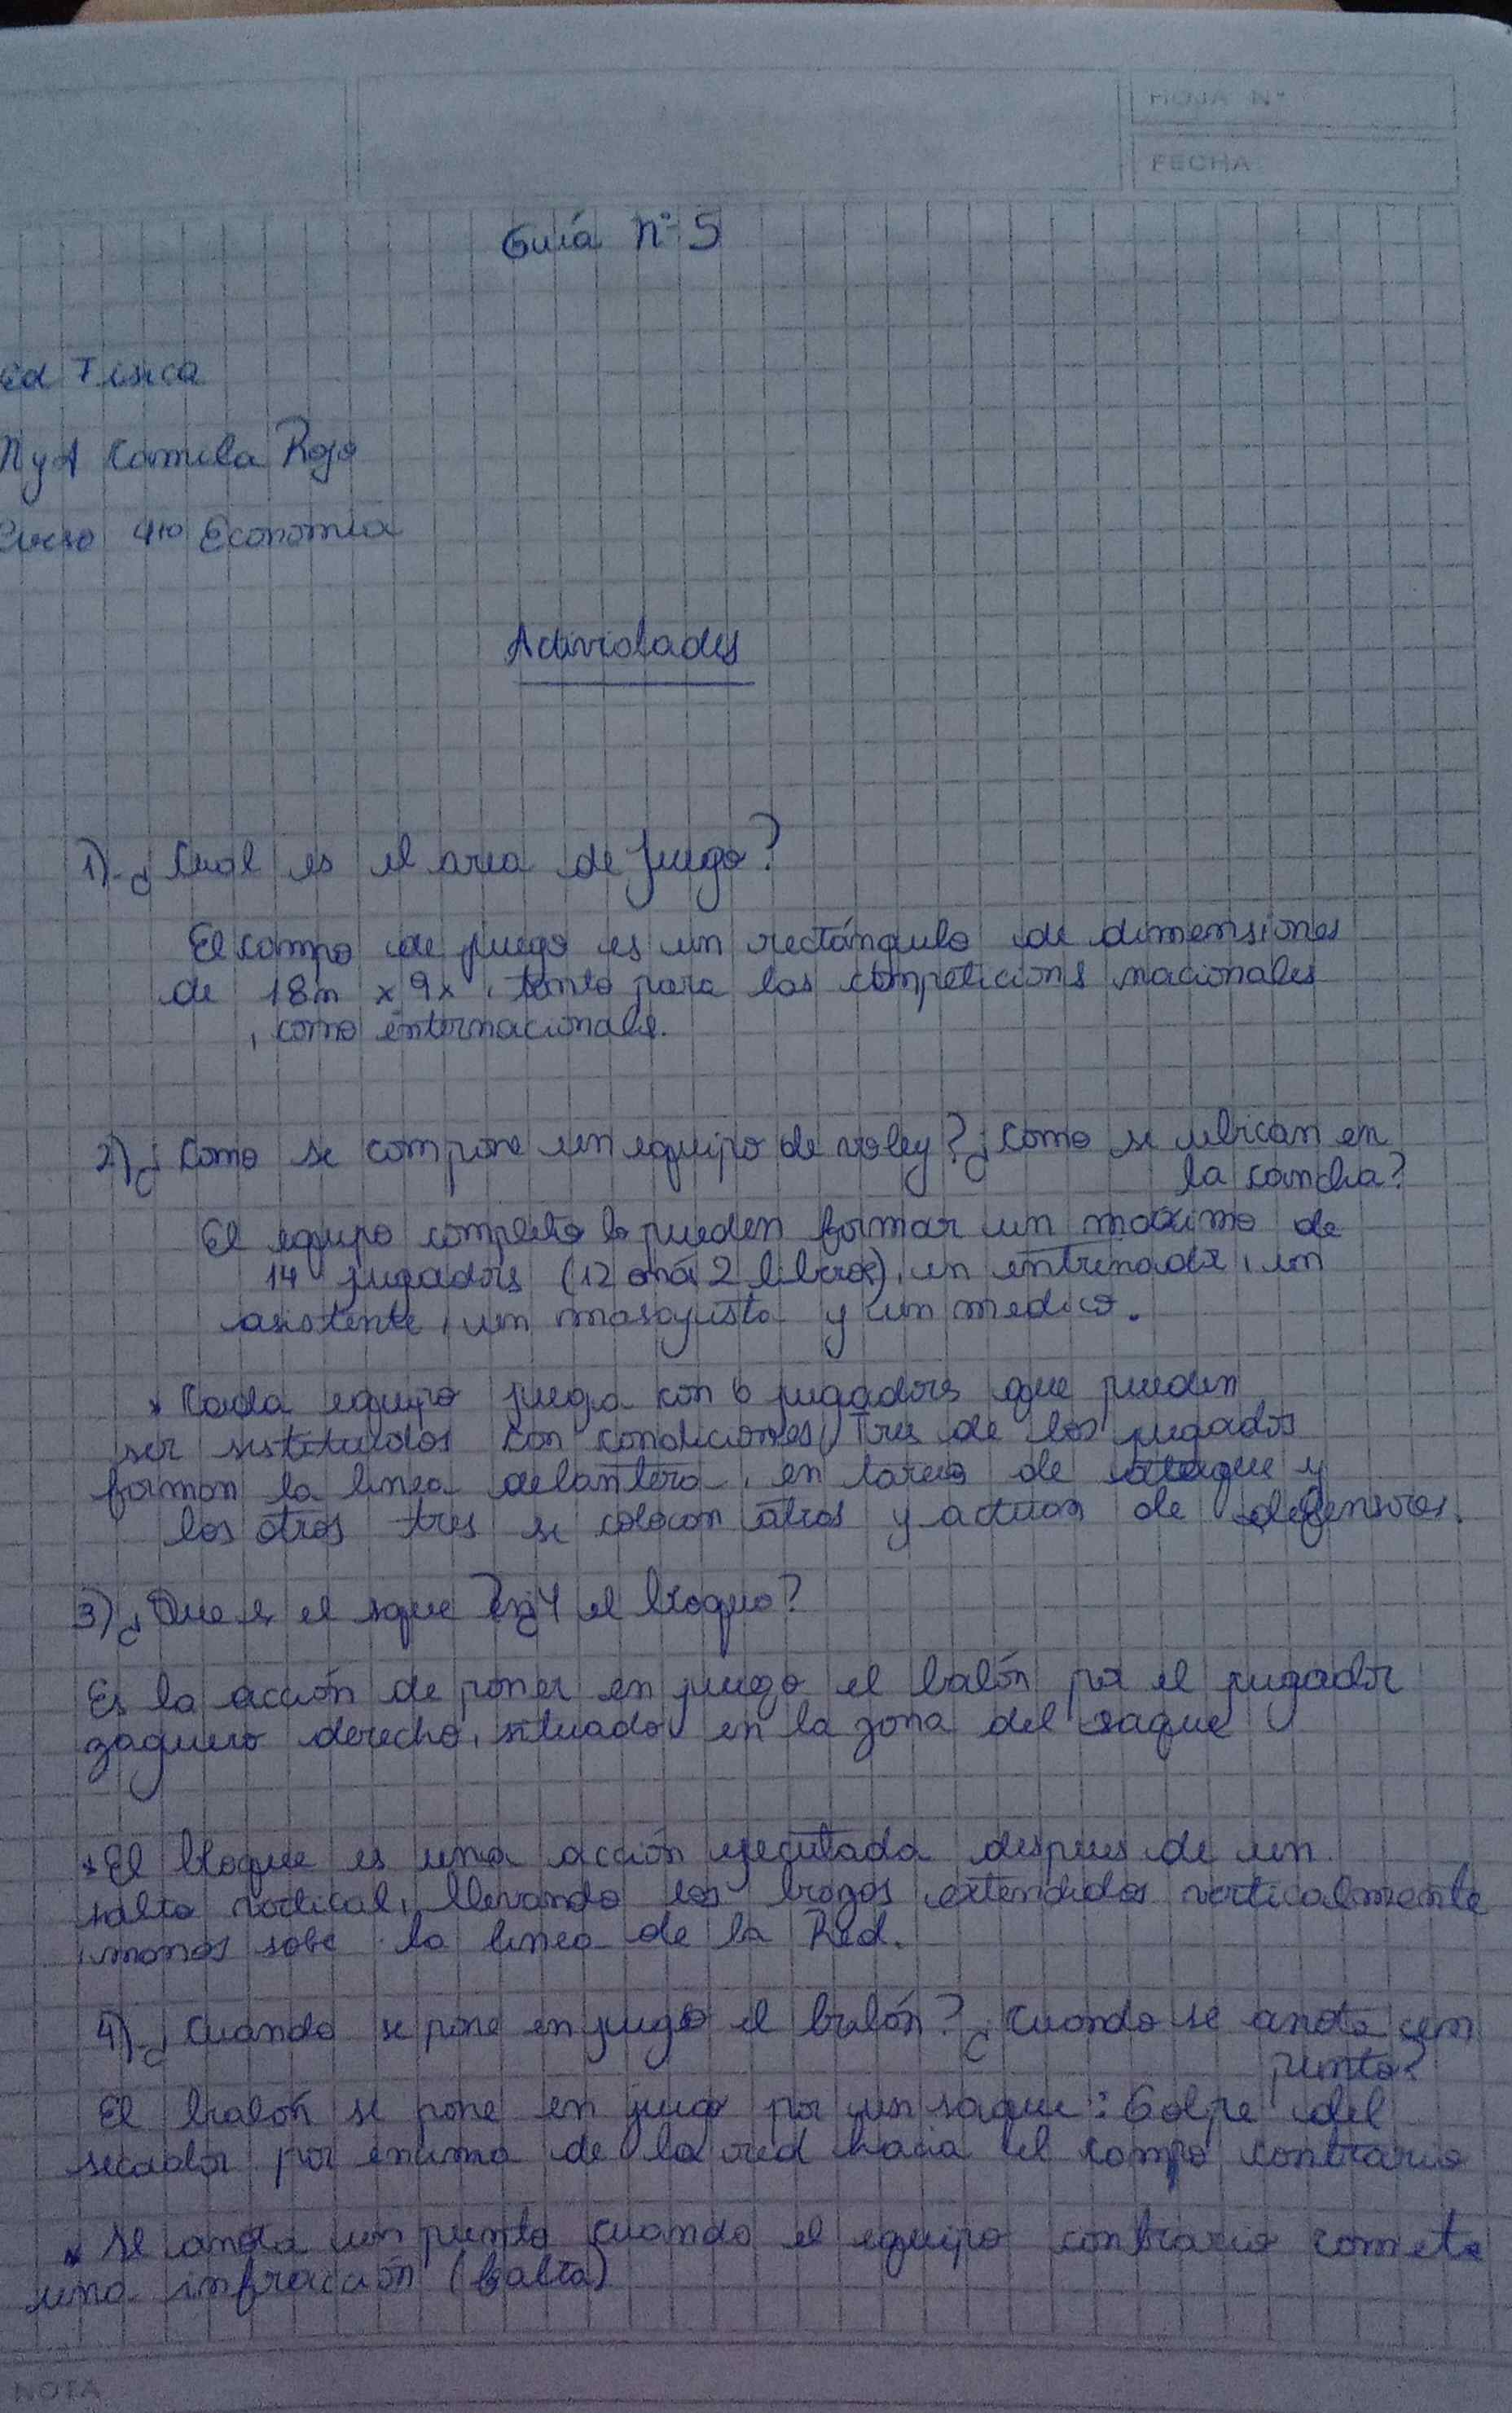 HOJA N°
FECHA
Guía n° 5
Ed Fisica
N y A Camila Rojo
Curso 4to Economia
Actividades
1)-¿Cual es el area de juego?
El campo de juego es un rectángulo de dimensiones
de 18m x 9x, tanto para las competicions nacionales
, como internacionale.
2)¿Como se compone un equipo de voley? ¿como se ubican en
la cancha?
El equipo completo lo pueden formar un maximo de
14 jugadors (12 más 2 liberos), un entrenador, un
asistente, un masajista y un medico.
* Cada equipo juega con 6 jugadores que pueden
ser sustituidos con condiciones, Tres de los jugados
forman la linea delantera, en tareas de ataque y
los otros tres se colocan atras y actuan de defensores.
3)¿Que es el sque ¿Y el bloqueo?
Es la acción de poner en juego el balón por el jugador
zaguero derecho, situado en la zona del saque
*El bloque es una acción ejecutada despues de un
salto vertical, llevando los brazos extendidos verticalmente
, manos sobe la linea de la Red.
4)-¿Cuando se pone en juego el balón? ¿Cuando se anota un
punto?
El balón se pone en juego por un saque: Golpe del
secador por encima de la red hacia el campo contrario
* Se anota un punto cuando el equipo contrario comete
una infracción (falta)
NOTA